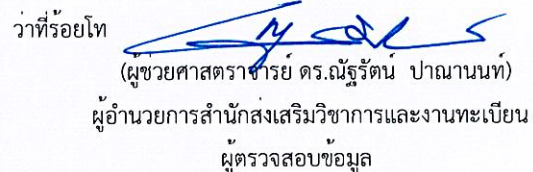 ว่าที่ร้อยโท
(ผู้ช่วยศาสตราจารย์ ดร.ณัฐรัตน์ ปาณานนท์)
ผู้อำนวยการสำนักส่งเสริมวิชาการและงานทะเบียน
ผู้ตรวจสอบข้อมูล